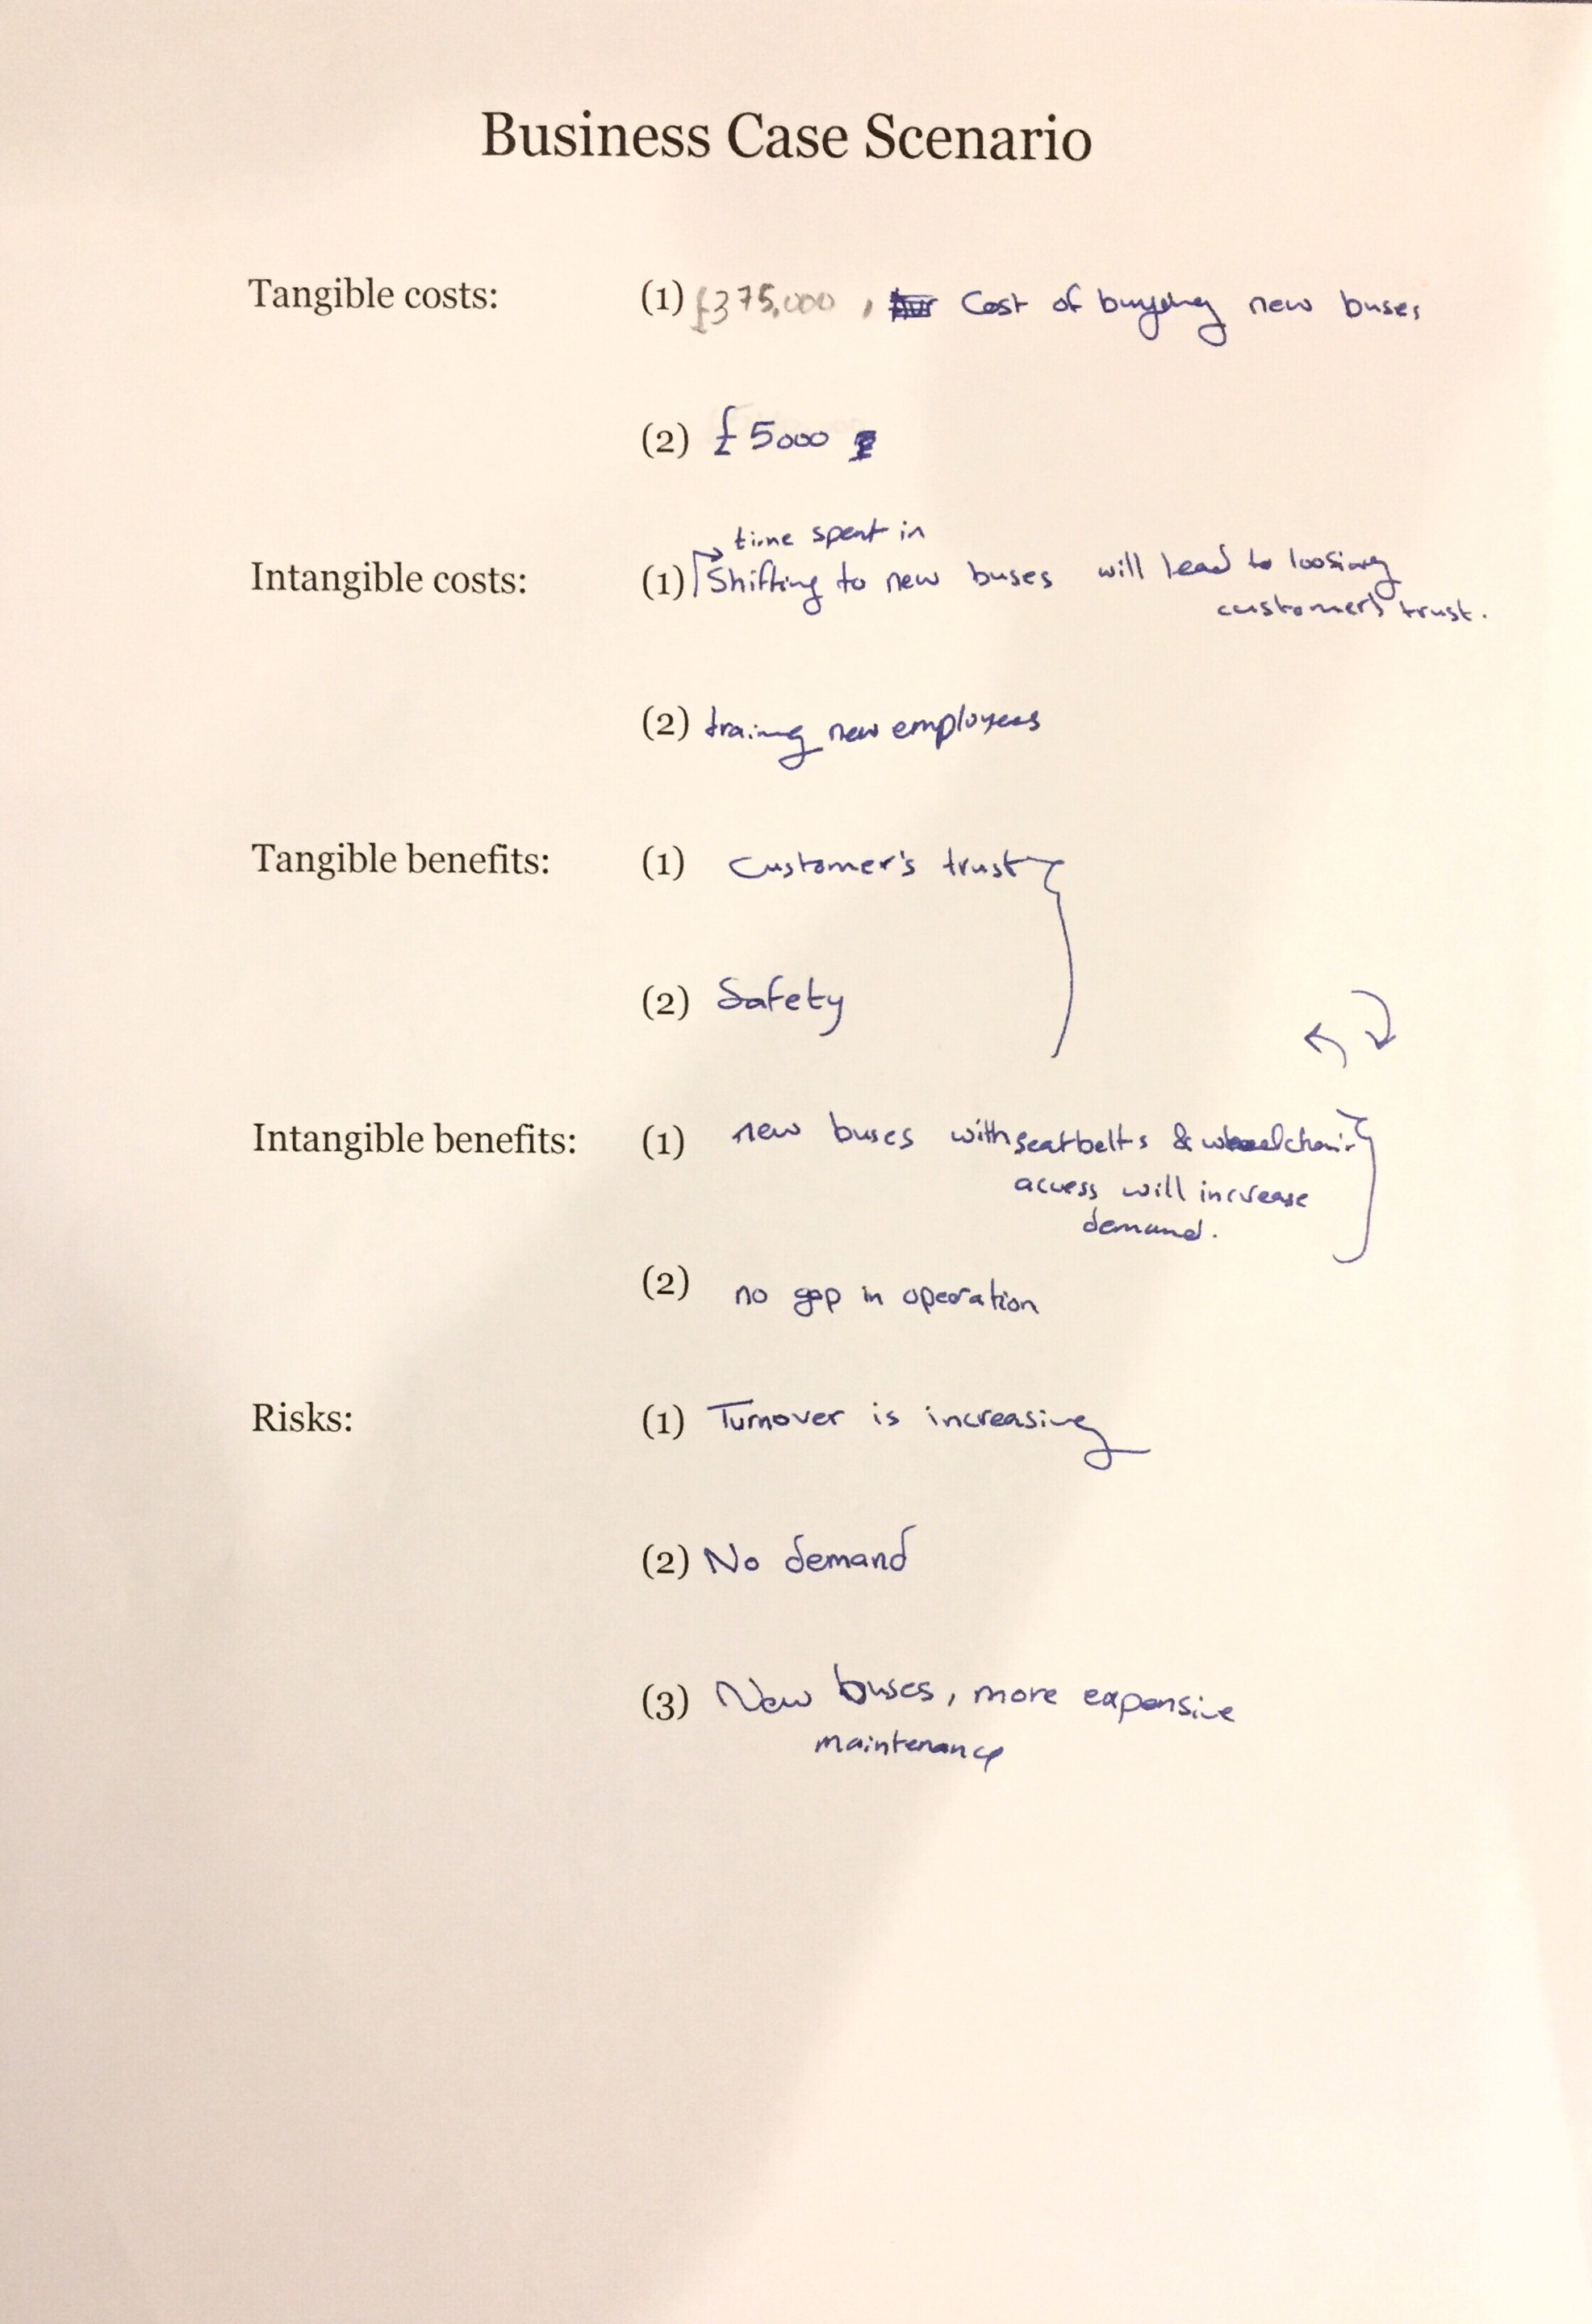 Business Case Scenario
Tangible costs: (1) £375,000, Cost of buying new buses
(2) £5000
time spent in
Intangible costs: (1) Shifting to new buses will lead to loosing
customers trust.
(2) training new employees
Tangible benefits: (1) Customer's trust
(2) Safety
Intangible benefits: (1) new buses with seatbelts & wheelchair
access will increase
demand.
(2) no gap in operation
Risks: (1) Turnover is increasing
(2) No demand
(3) New buses, more expensive
maintenance